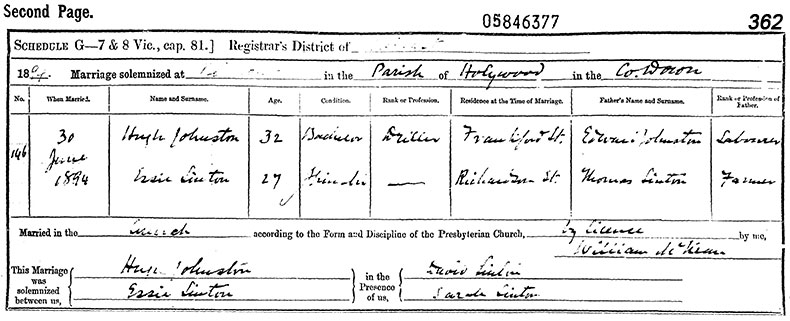 Second Page.
05846377
362
SCHEDULE G—7 & 8 Vic., cap. 81.] Registrar's District of
1894. Marriage solemnized at in the Parish of Holywood in the Co. Down
No. When Married. Name and Surname. Age. Condition. Rank or Profession. Residence at the Time of Marriage. Father's Name and Surname. Rank or Profession of Father.
146 30 June 1894
Hugh Johnston 32 Bachelor Driller Frankford St. Edward Johnston Labourer
Essie Linton 27 Spinster — Richardson St. Thomas Linton Farmer
Married in the Church according to the Form and Discipline of the Presbyterian Church, by licence by me,
William McKean
This Marriage was solemnized between us, Hugh Johnston
Essie Linton
in the Presence of us, David Linton
Sarah Linton